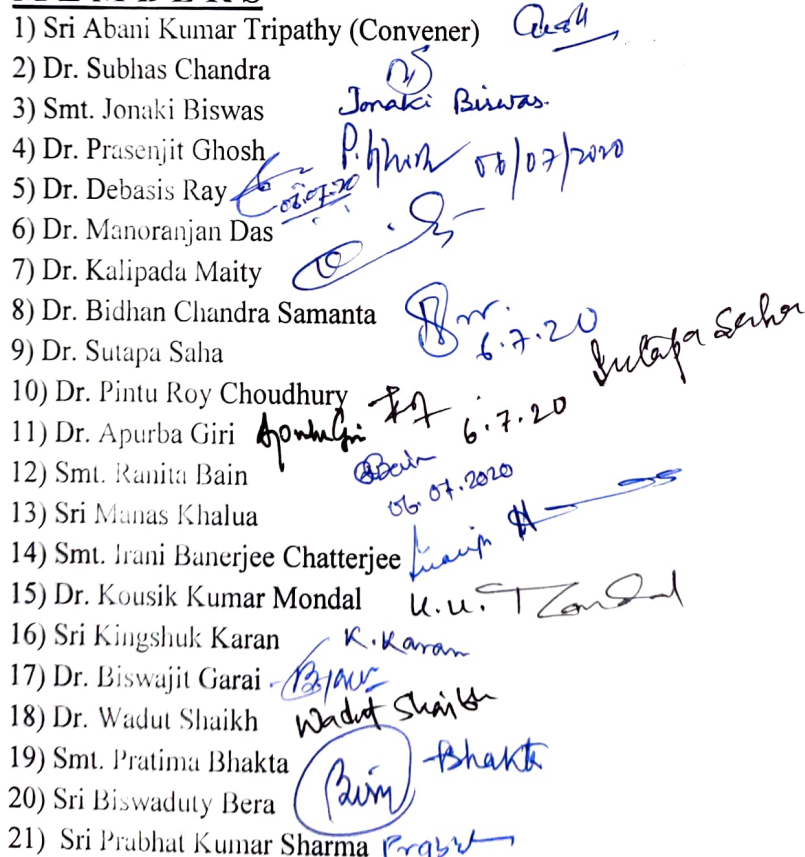 MEMBERS
1) Sri Abani Kumar Tripathy (Convener)
2) Dr. Subhas Chandra
3) Smt. Jonaki Biswas Jonaki Biswas.
4) Dr. Prasenjit Ghosh P. Ghosh 06/07/2020
5) Dr. Debasis Ray 06.07.20
6) Dr. Manoranjan Das
7) Dr. Kalipada Maity
8) Dr. Bidhan Chandra Samanta 6.7.20
9) Dr. Sutapa Saha Sutapa Saha
10) Dr. Pintu Roy Choudhury 6.7.20
11) Dr. Apurba Giri Apurba Giri
12) Smt. Ranita Bain RBain 06.07.2020
13) Sri Manas Khalua
14) Smt. Irani Banerjee Chatterjee
15) Dr. Kousik Kumar Mondal K.K. Mondal
16) Sri Kingshuk Karan K. Karan
17) Dr. Biswajit Garai
18) Dr. Wadut Shaikh Wadut Shaikh
19) Smt. Pratima Bhakta Bhakta
20) Sri Biswaduty Bera
21) Sri Prabhat Kumar Sharma